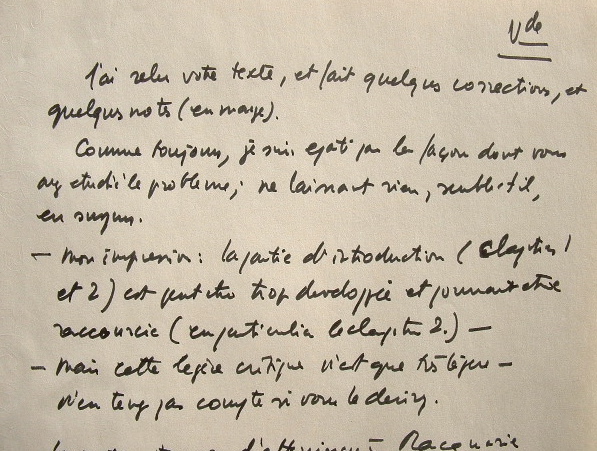 Vde
J'ai relu votre texte, et fait quelques corrections, et
quelques notes (en marge).
Comme toujours, je suis épaté par la façon dont vous
avez étudié le problème; ne laissant rien, semble-t-il,
en suspens.
— Mon impression: la partie d'introduction (Chapitres 1
et 2) est peut être trop développée et pourrait être
raccourcie (en particulier le chapitre 2.) —
— Mais cette légère critique n'est que très légère —
n'en tenez pas compte si vous le désirez.